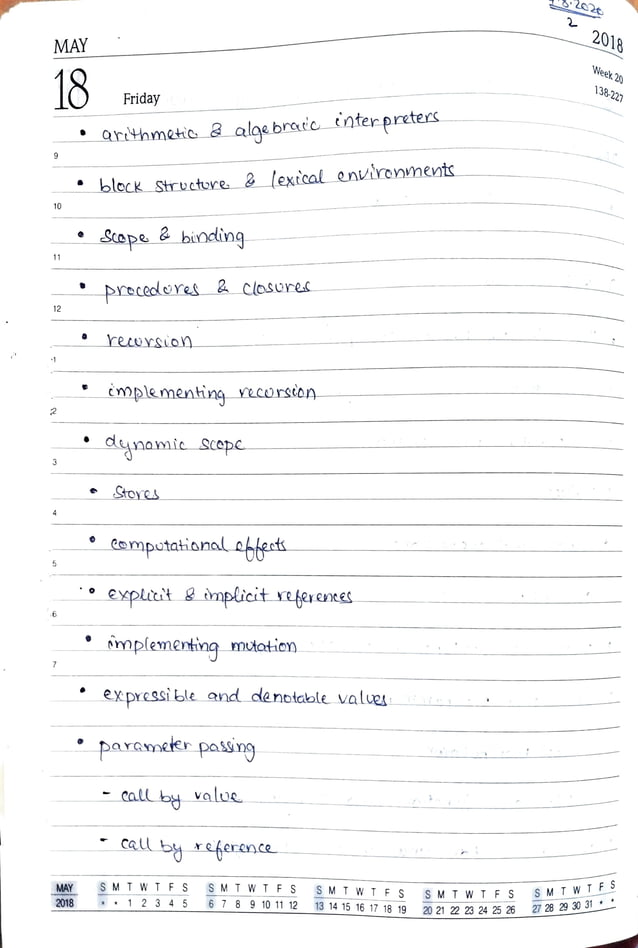 .8.2020
2
MAY
2018
18
Friday
Week 20
138-227
• arithmetic & algebraic interpreters
9
• block structure & lexical environments
10
• scope & binding
11
• procedures & closures
12
• recursion
1
• implementing recursion
2
• dynamic scope
3
• Stores
4
• computational effects
5
• explicit & implicit references
6
• implementing mutation
7
• expressible and denotable values
• parameter passing
- call by value
- call by reference
MAY S M T W T F S S M T W T F S S M T W T F S S M T W T F S S M T W T F S
2018 * * 1 2 3 4 5 6 7 8 9 10 11 12 13 14 15 16 17 18 19 20 21 22 23 24 25 26 27 28 29 30 31 * *